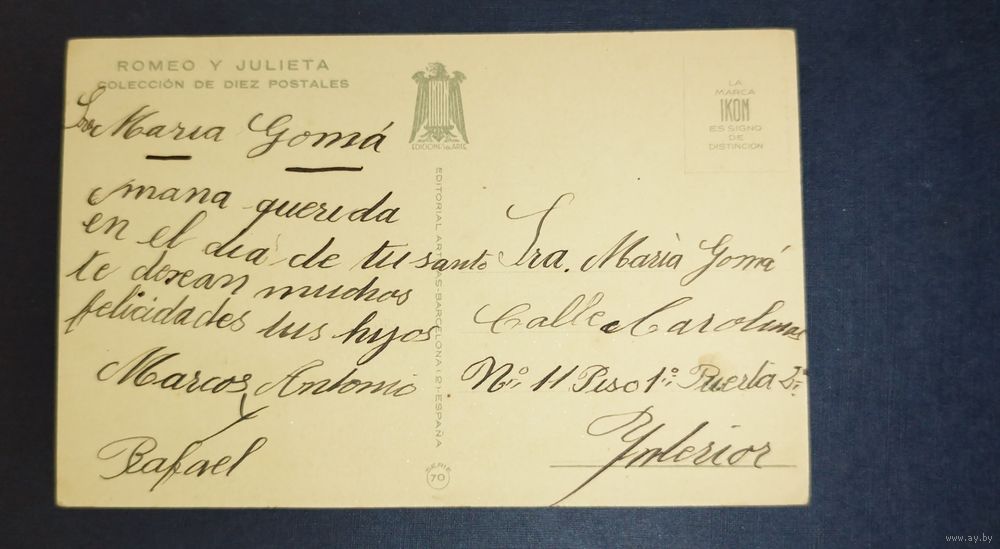 ROMEO Y JULIETA
COLECCIÓN DE DIEZ POSTALES
IKON
EDICIONES de ARTE
LA
MARCA
IKON
ES SIGNO
DE
DISTINCION
Sra María Gomá
mama querida
en el día de tu santo
te desean muchos
felicidades tus hijos
Marcos Antonio
y
Rafael
EDITORIAL ARTIGAS-BARCELONA (2)-ESPAÑA
SERIE
70
Sra. Marià Gomá
Calle Carolinas
Nº 11 Piso 1º Puerta 2ª
Ynterior
www.ay.by